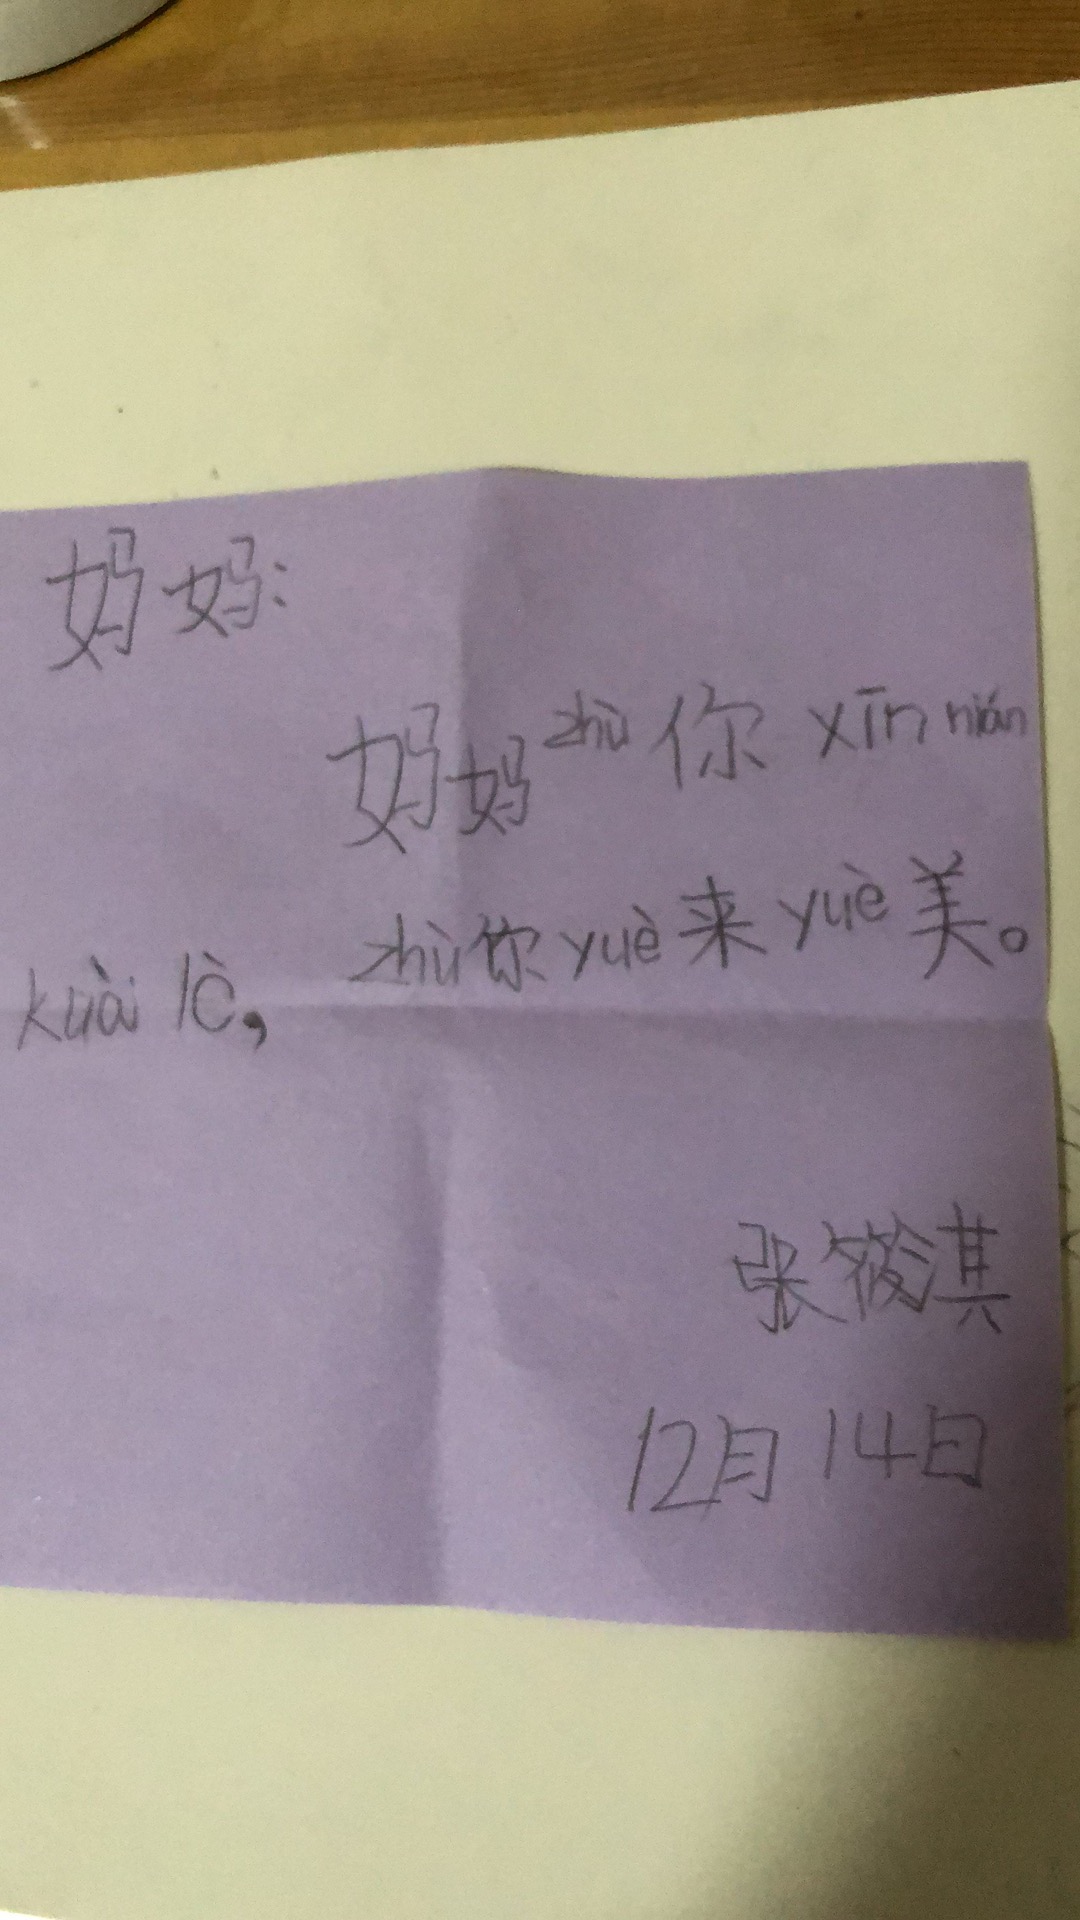 妈妈:
妈妈zhù你 xīn nián
kuài lè, zhù你yuè来yuè美。
张筱淇
12月14日